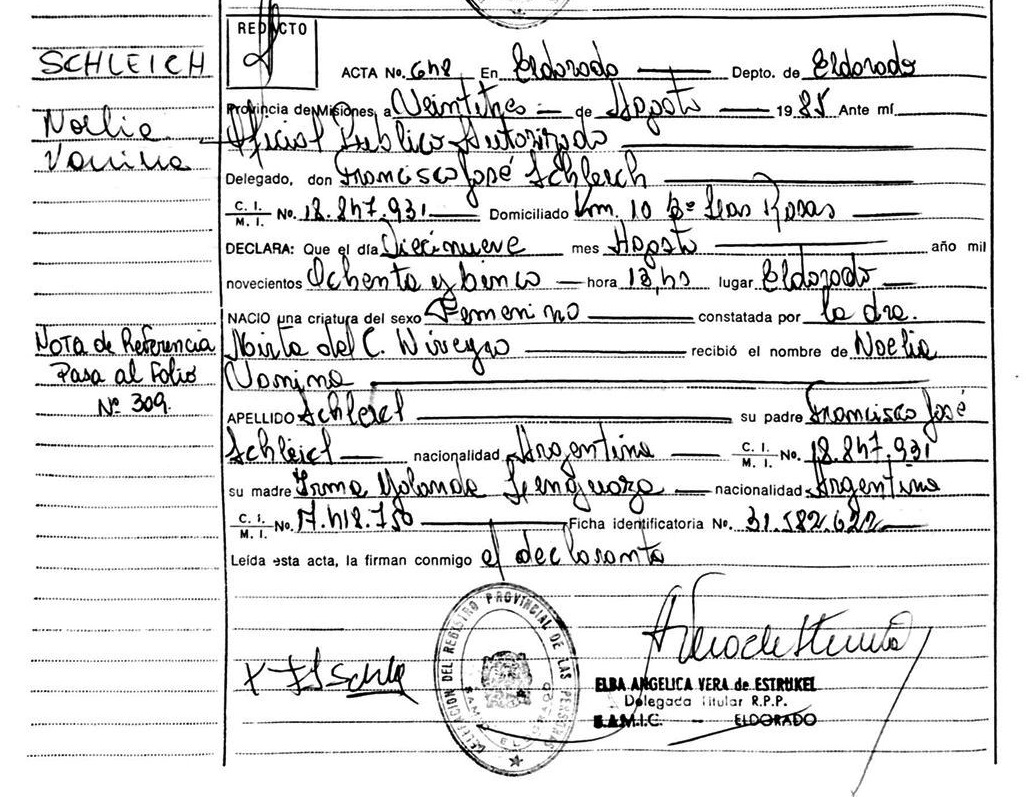 SCHLEICH
Noelia
Vanina
Nota de Referencia
Pasa al Folio
Nº 309.
REDACTO
ACTA No. 648 En Eldorado Depto. de Eldorado
Provincia de Misiones a Veintitres de Agosto 1985 Ante mí
Oficial Publico Autorizado
Delegado, don Francisco José Schleich
C. I. M. I. No. 18.847.931 Domiciliado Km. 10 Bº Las Rosas
DECLARA: Que el día Diecinueve mes Agosto año mil
novecientos Ochenta y Cinco hora 13,hs lugar Eldorado
NACIO una criatura del sexo Femenino constatada por la dra.
Mirta del C. recibió el nombre de Noelia
Vanina
APELLIDO Schleich su padre Francisco José
Schleich nacionalidad Argentina C. I. M. I. No. 18.847.931
su madre Irma Yolanda nacionalidad Argentina
C. I. M. I. No. 17.412.750 Ficha identificatoria No. 31.582.622
Leída esta acta, la firman conmigo el declarante
DELEGACION DEL REGISTRO PROVINCIAL DE LAS PERSONAS
SAMIC ELDORADO
ELBA ANGELICA VERA de ESTRUKEL
Delegada Titular R.P.P.
S.A.M.I.C. - ELDORADO